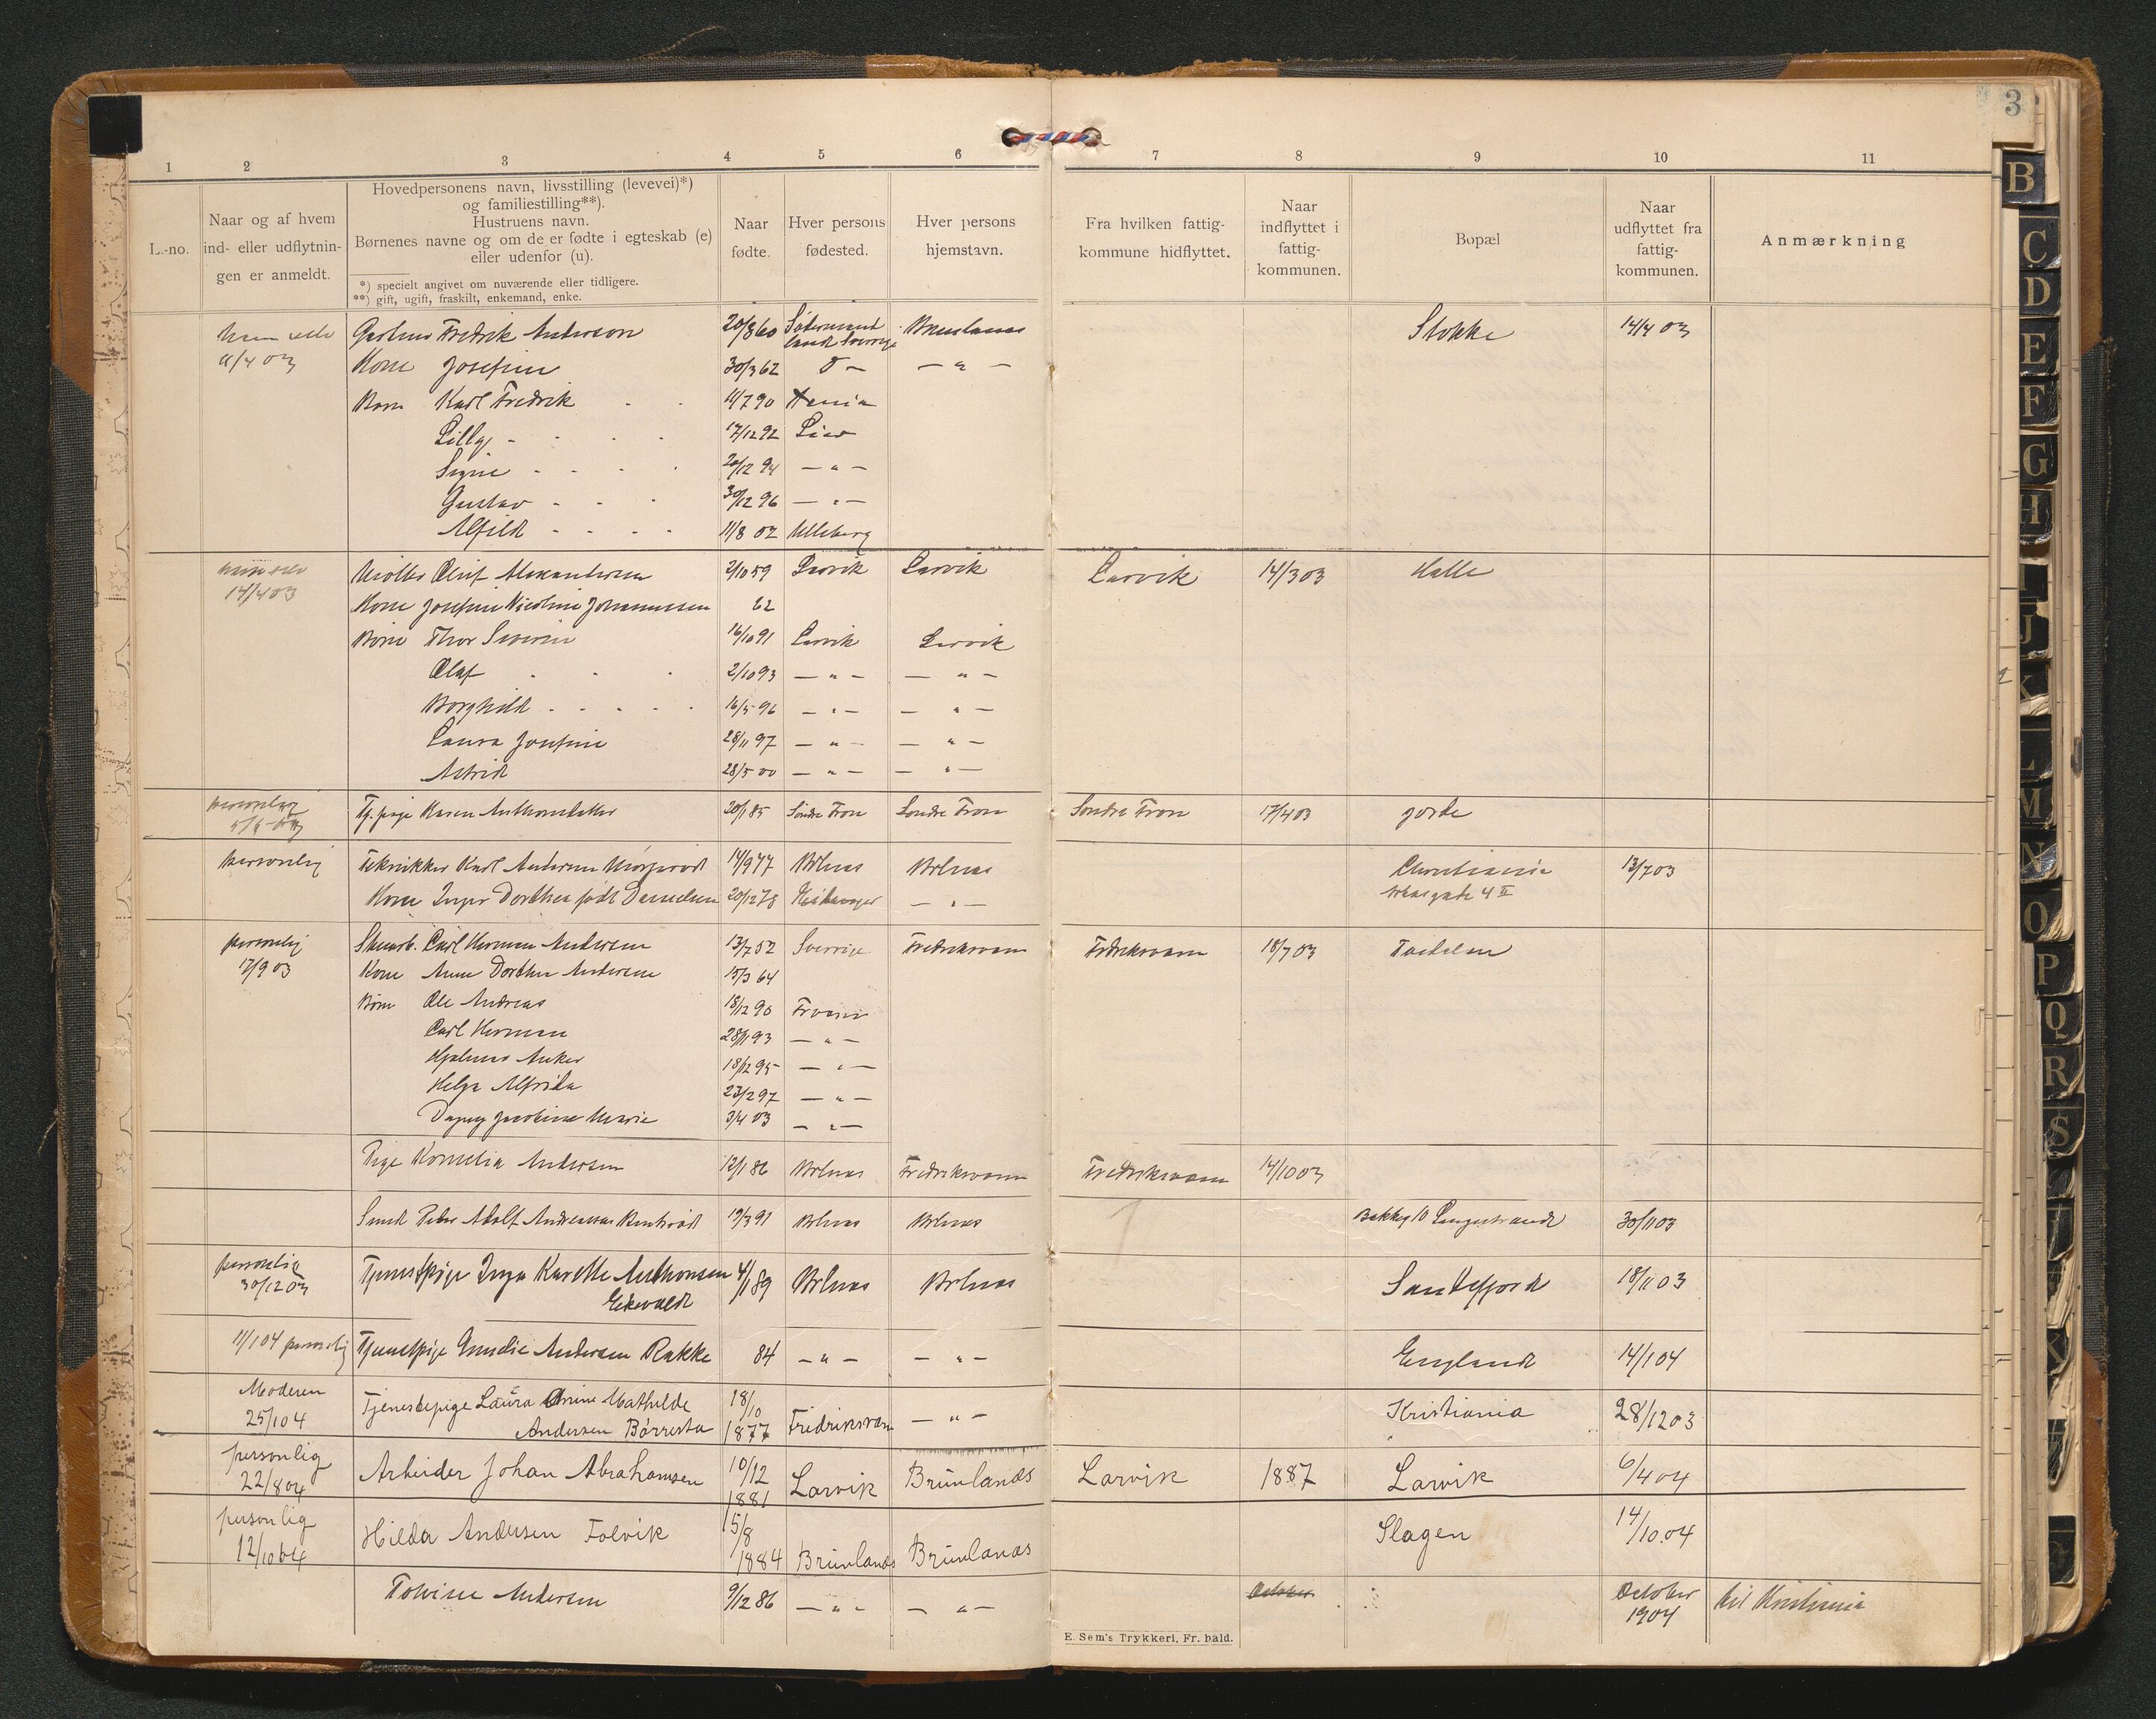 3
1 2 3 4 5 6 7 8 9 10 11
L.-no.
Naar og af hvem
ind- eller udflytnin-
gen er anmeldt.
Hovedpersonens navn, livsstilling (levevei)*)
og familiestilling**).
Hustruens navn.
Børnenes navne og om de er fødte i egteskab (e)
eller udenfor (u).
*) specielt angivet om nuværende eller tidligere.
**) gift, ugift, fraskilt, enkemand, enke.
Naar
fødte.
Hver persons
fødested.
Hver persons
hjemstavn.
Fra hvilken fattig-
kommune hidflyttet.
Naar
indflyttet i
fattig-
kommunen.
Bopæl
Naar
udflyttet fra
fattig-
kommunen.
Anmærkning
Fredrik Anderson 20/8 60 Brunlanes Stokke 14/4 03
11/4 03 Kone Josefine 30/3 62 D — — " —
Børn Karl Fredrik 11/7 90
Lilly 17/12 92 Lier
Signe 20/12 94 — " —
Gustav 30/12 96 — " —
Alfild 11/8 02 Ulleberg
Oluf Alexandersen 2/10 59 Larvik Larvik Larvik 14/3 03 Halle
14/4 03 Kone Josefine Nicoline Johannessen 62
Børn Thor Severin 16/10 91 Larvik Larvik
Olaf 2/10 93 — " — — " —
Borghild 16/5 96 — " — — " —
Laura Josefine 28/11 97 — " — — " —
Astrid 28/5 00 — " — — " —
personlig Tj.pige Karen 20/1 85 Søndre Fron Søndre Fron Søndre Fron 17/4 03 Jorde
personlig Tekniker Karl Andersen 14/9 77 Brlnes Brlnes Christiania 13/7 03
Kone Inger Dorthea født Danielsen 20/12 78 — " —
personlig Carl Herman Andersen 13/7 52 Sverrige Fredriksværn Fredriksværn 18/7 03
17/9 03 Kone Anne Dorthea Andersen 15/3 64
Børn Ole Andreas 18/12 90
Carl Herman 28/11 93 — " —
Hjalmar Anker 18/12 95 — " —
Helga Alfrida 23/2 97 — " —
Dagny Jacobine Marie 3/4 03 — " —
Pige Kornelia Andersen 12/1 86 Brlnes Fredriksværn Fredriksværn 14/10 03
Peder Adolf Andreassen 19/3 91 Brlnes Brlnes Langestrand 30/11 03
personlig Tjenestpige Inga Karette Anthonsen 4/1 89 Brlnes Brlnes Sandefjord 18/11 03
30/12 03 Eikevald
11/1 04 personlig Tjenestpige Andersen Rakke 84 — " — — " — England 14/1 04
Moderen Tjenestepige Laura Anine Mathilde 18/10
25/1 04 Andersen Børresta 1877 Fredriksværn — " — Kristiania 28/12 03
personlig
22/8 04 Arbeider Johan Abrahamsen 10/12 1881 Larvik Brunlanes Larvik 1887 Larvik 6/4 04
personlig
12/10 04 Hilda Andersen Folvik 15/8 1884 Brunlanes Brunlanes Slagen 14/10.04
Andersen 9/12 86 — " — — " — October October
1904 til Kristiania
E. Sem's Trykkeri, Fr. hald.
B
C
D
E
F
G
H
I
J
K
L
M
N
O
P
Q
R
S